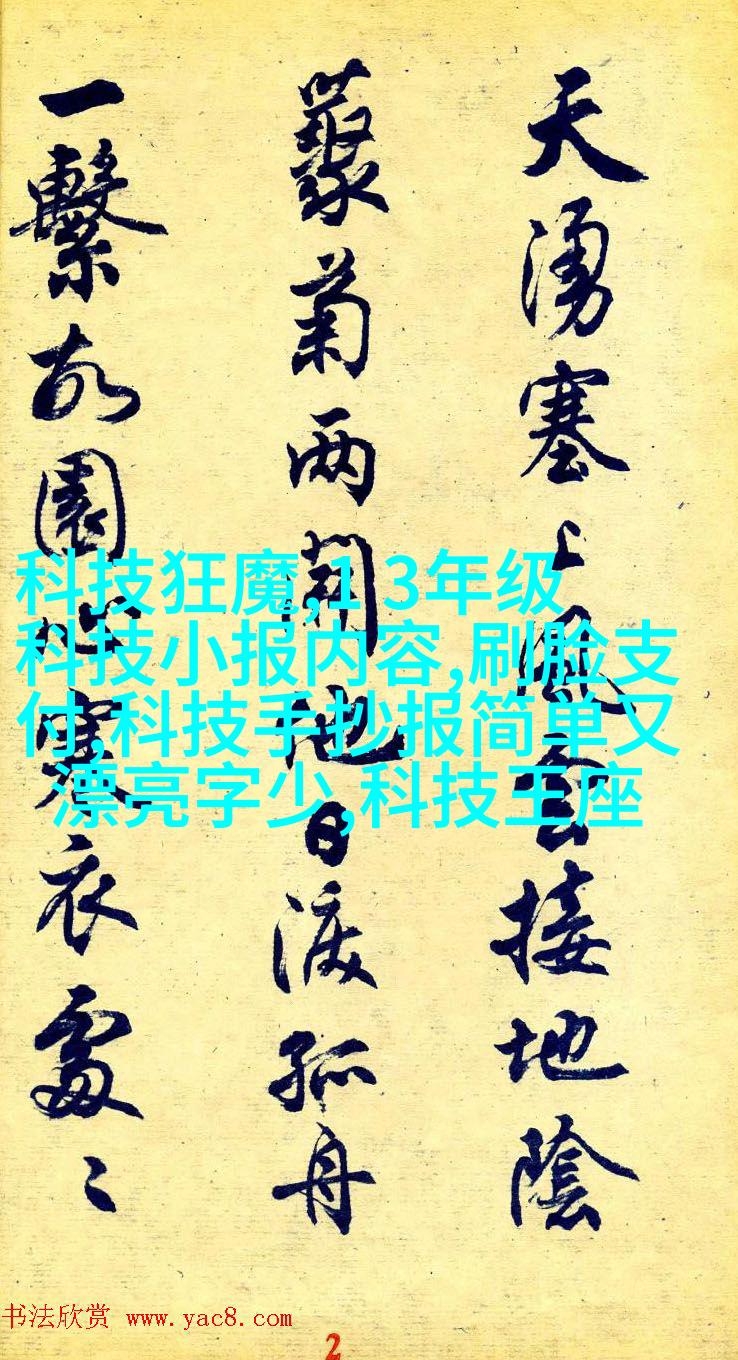 天湧塞上風雲接地陰
叢菊兩開他日淚孤舟
一繫故園心寒衣處〻
科技狂魔,1 3年级
科技小报内容,刷脸支
付,科技手抄报简单又
漂亮字少,科技王座
书法欣赏 www.yac8.com
2